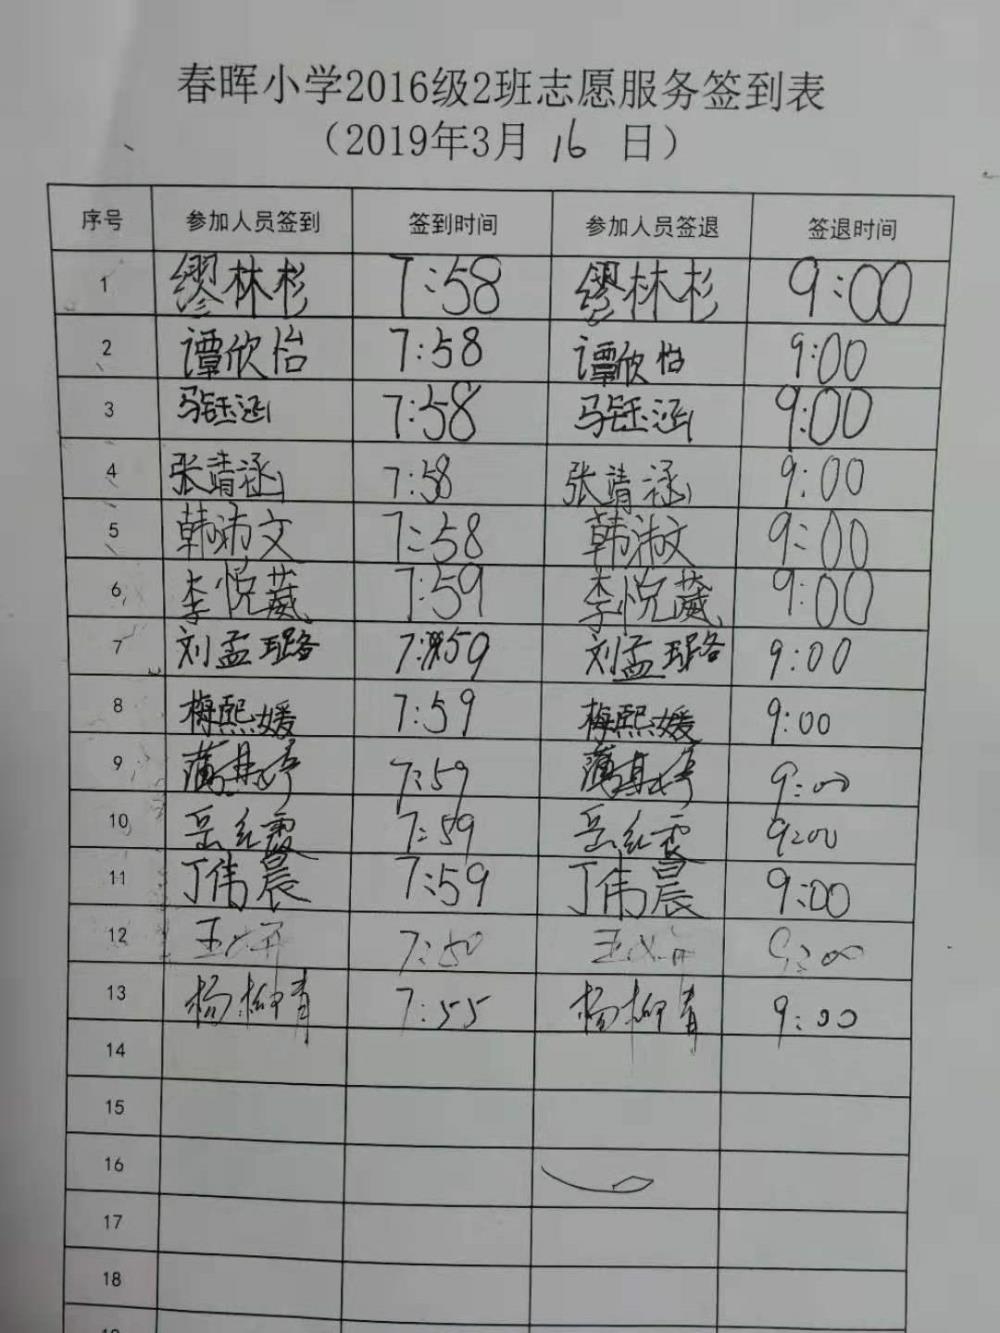 春晖小学2016级2班志愿服务签到表
（2019年3月16日）
序号 参加人员签到 签到时间 参加人员签退 签退时间
1 缪林杉 7:58 缪林杉 9:00
2 谭欣怡 7:58 谭欣怡 9:00
3 马钰涵 7:58 马钰涵 9:00
4 张靖涵 7:58 张靖涵 9:00
5 韩沛文 7:58 韩淑文 9:00
6 李悦葳 7:59 李悦葳 9:00
7 刘孟璐 7:59 刘孟璐 9:00
8 梅熙媛 7:59 梅熙媛 9:00
9 7:59 9:00
10 岳红霞 7:59 岳红霞 9:00
11 丁伟晨 7:59 丁伟晨 9:00
12 王 7:50 王 9:00
13 杨柳青 7:55 杨柳青 9:00
14
15
16
17
18